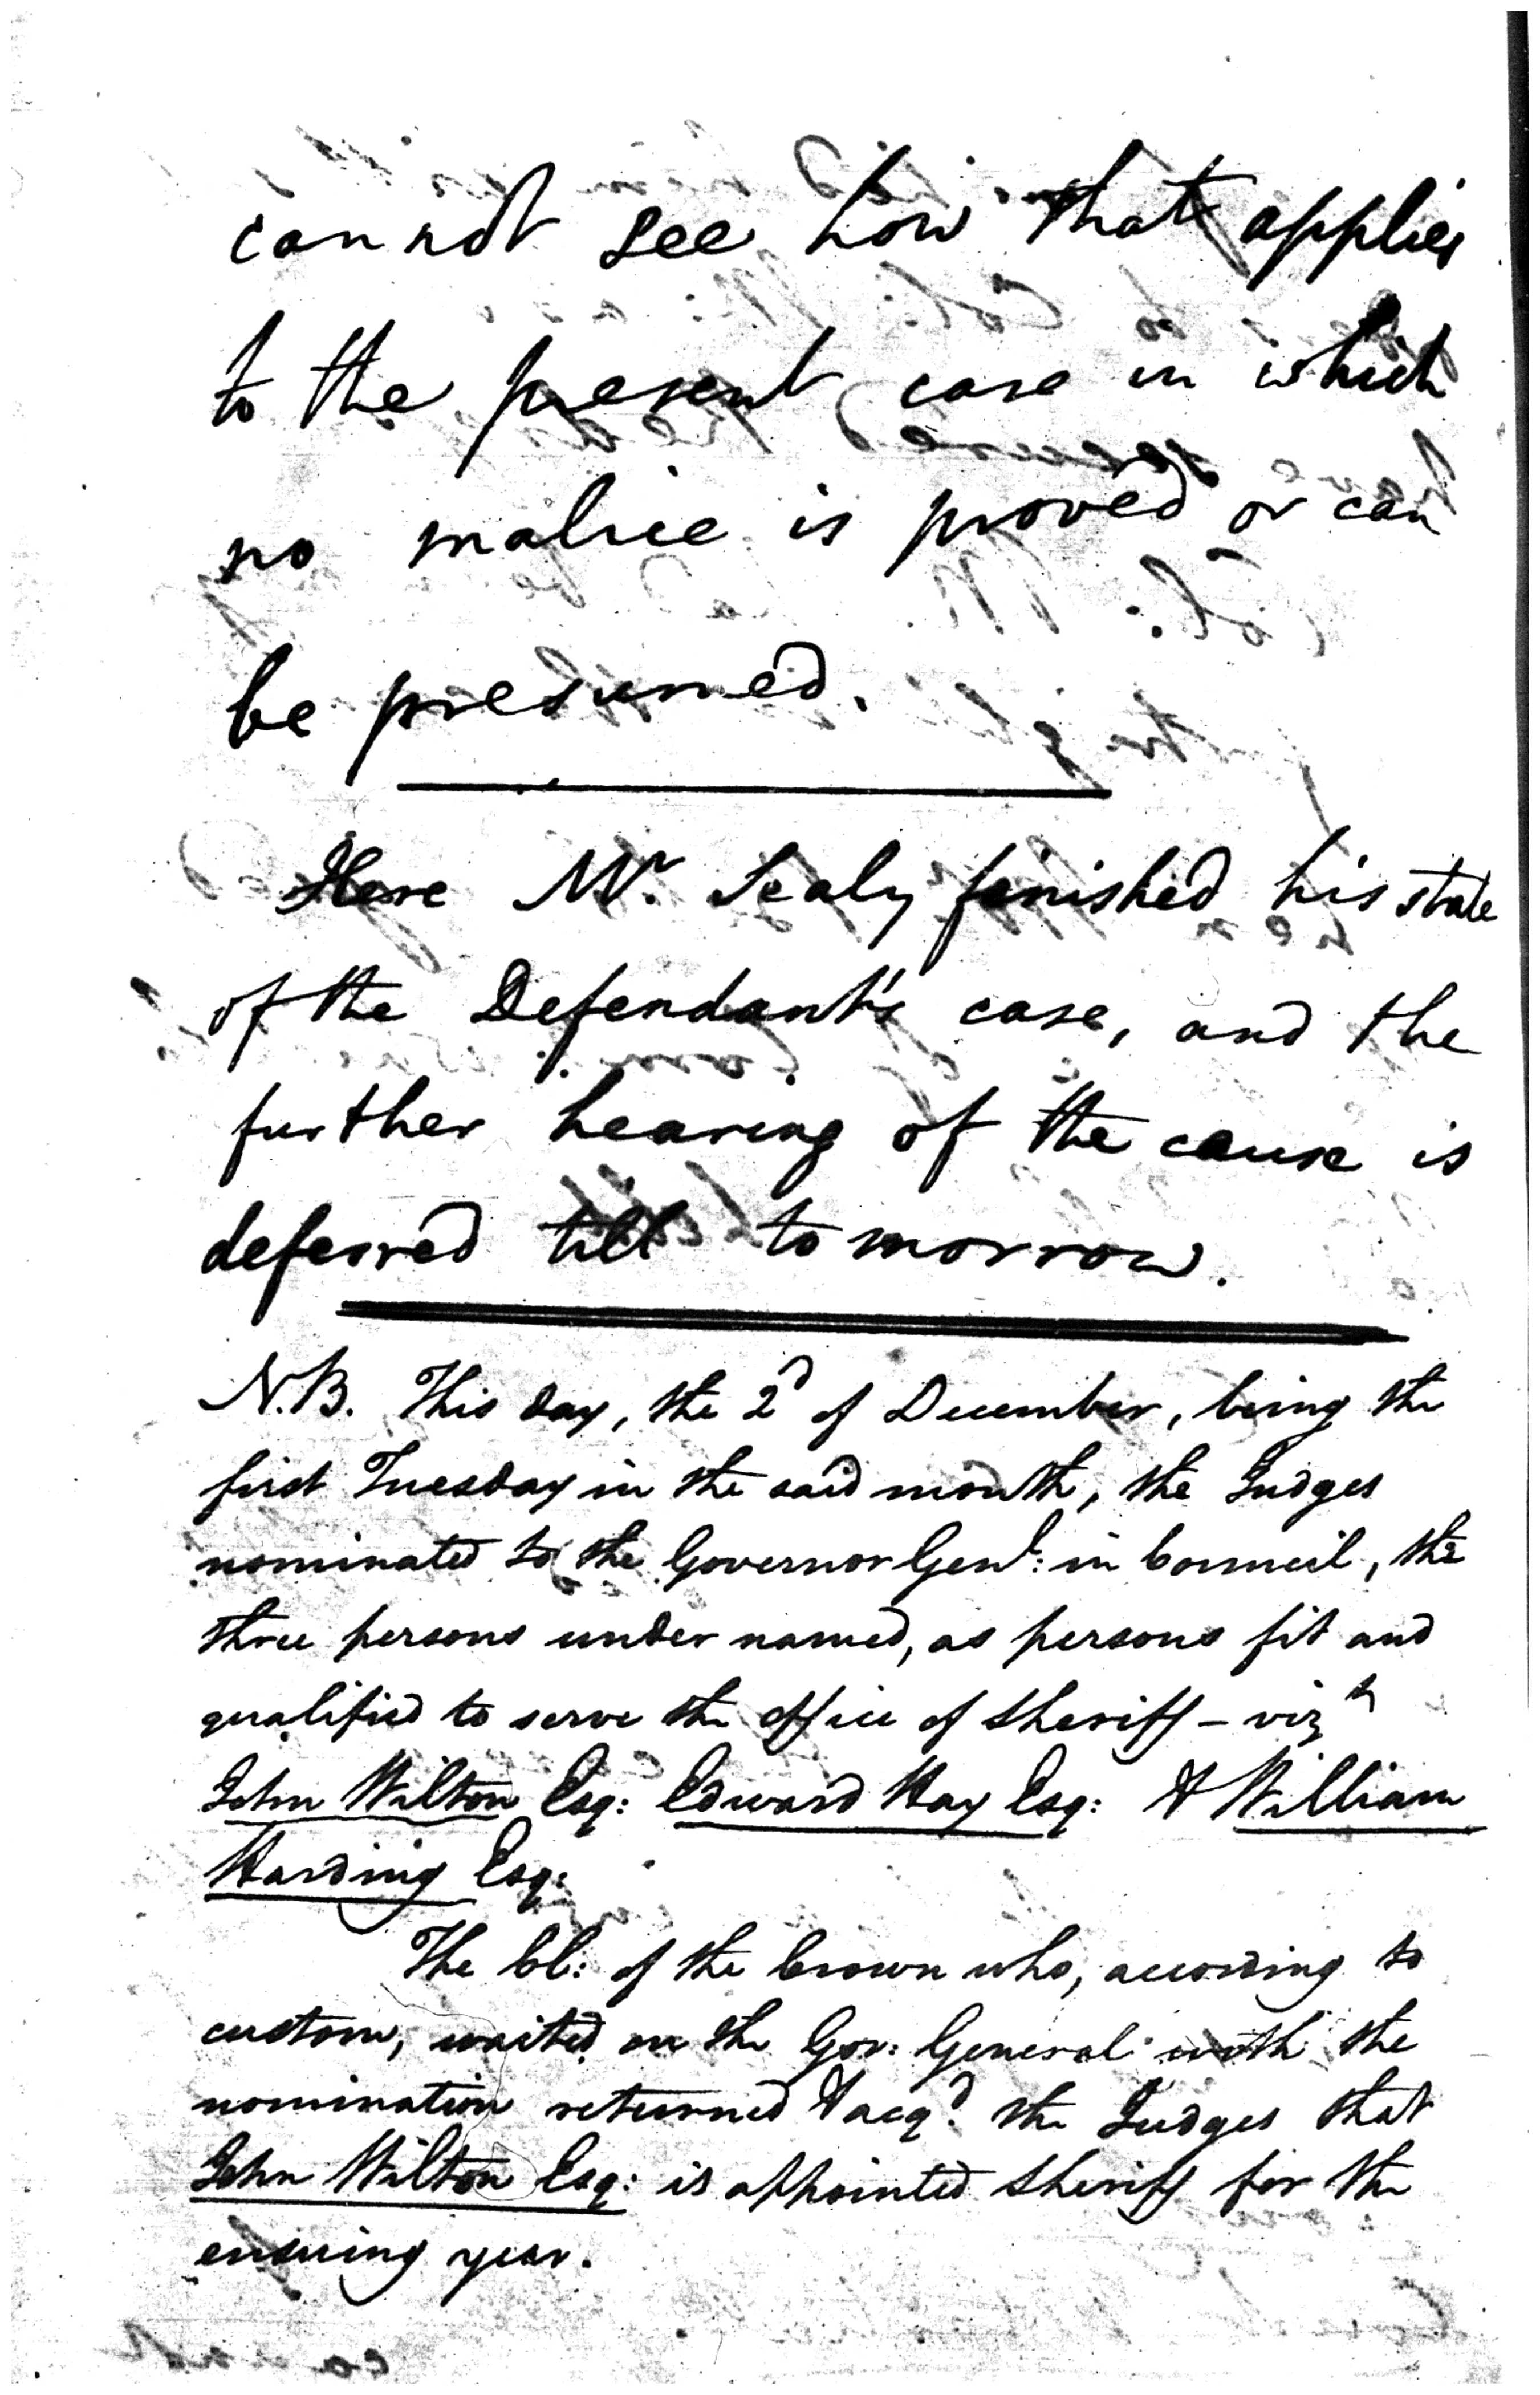 cannot see how that applies
to the present case in which
no malice is proved or can
be presumed.
Here Mr. Sealy finished his state
of the Defendant's case, and the
further hearing of the cause is
deferred till to morrow.
N.B. This day, the 2d of December, being the
first Tuesday in the said month, the Judges
nominated to the Governor Genl: in Council, the
three persons under named, as persons fit and
qualified to serve the office of Sheriff - vizt
John Wilton Esq: Edward Hay Esq: & William
Harding Esq:
The Cl: of the Crown who, according to
custom, waited on the Gov: General with the
nomination returned & acqd. the Judges that
John Wilton Esq: is appointed Sheriff for the
ensuing year.